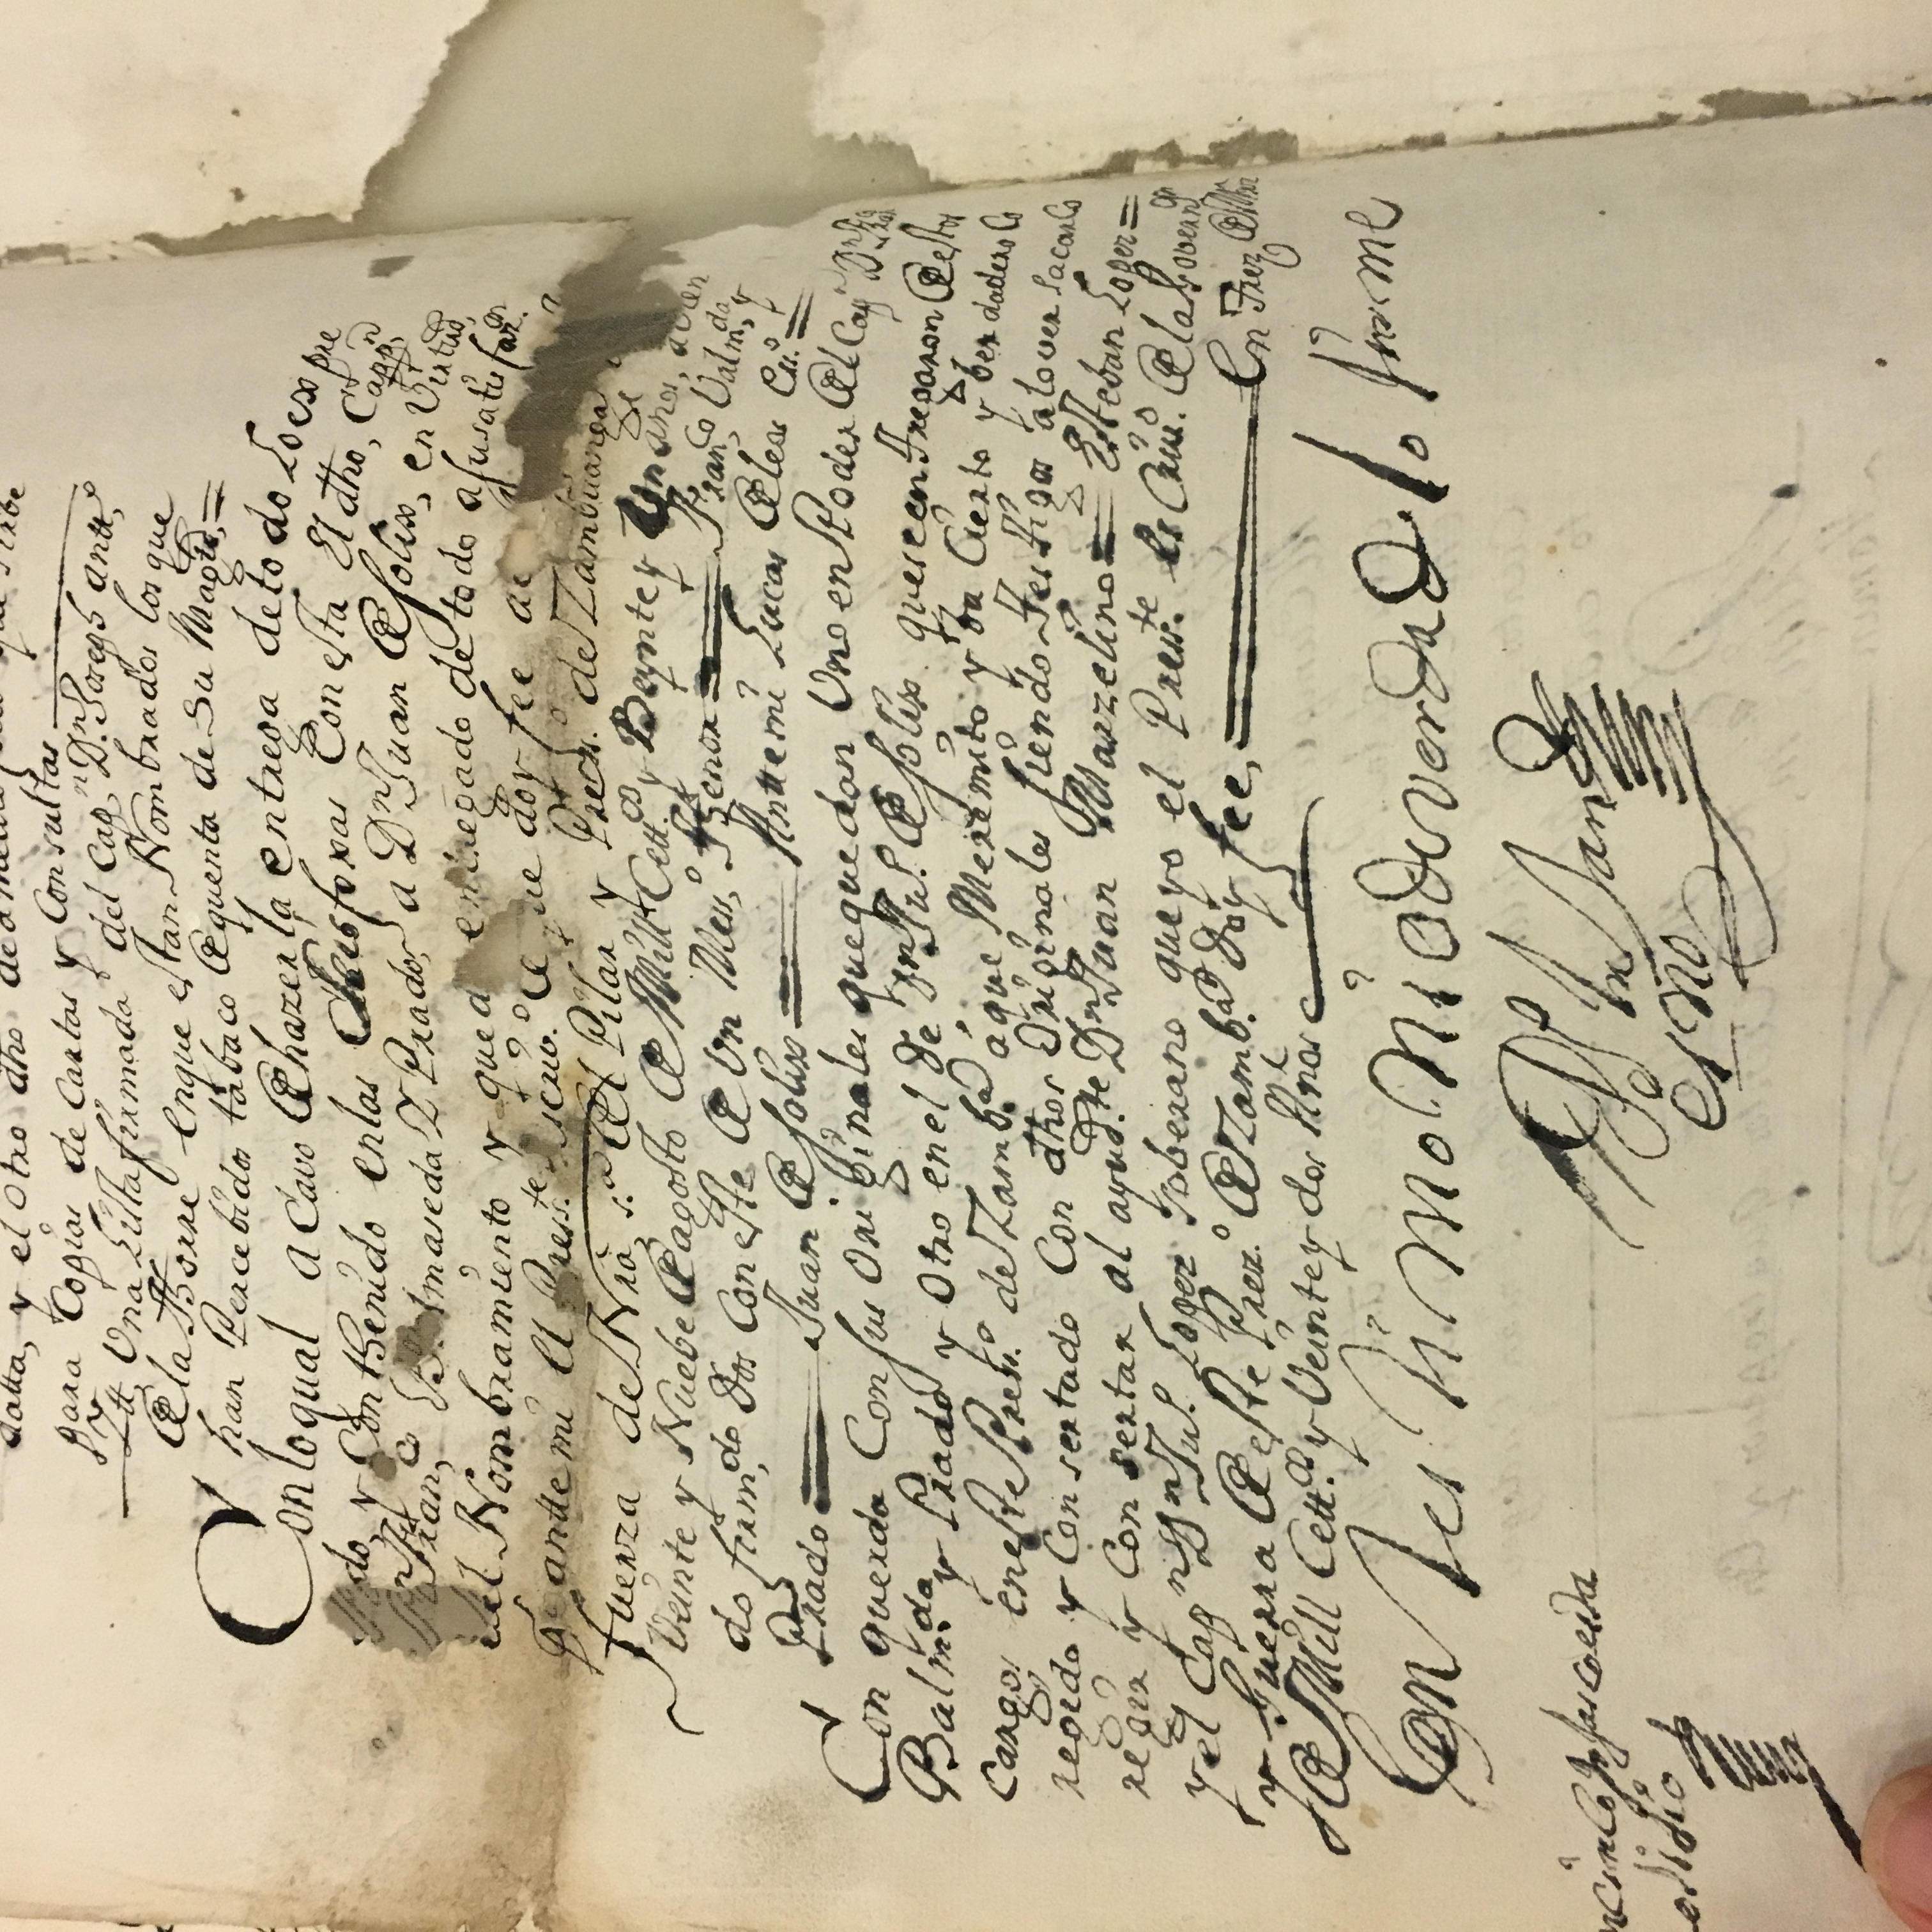 datta, y el Otro dho de a medio que sirbe
para Copias de Cartas y Consultas
Ytt, Una Lista firmada del Capn, Dn. Joseph antto,
De la Thorre en que estan Nombrados los que
han Percebidos tabaco De quenta de Su Magd,=
Con lo qual a Cavo De hazer la entrega de to do Lo expre
do, y Conthenido en las Seis foxas Con esta El dho, Cappn,
Franco, Balmaseda Y Prado, a Dn Juan De solix, en Virtud,
del Nombramiento y qued entregado de todo a su satisfazon.
antte mi El Presste. Escrivo. De que doy fee
fuerza de Nra, sa. Del Pilar y Press.o de Zambuanga
Veinte y Nuebe De agosto De Mill Cettos. y Beynte y Un años, avien
do firmdo, Dos Con este De Un Messo, Thenor = Franco, Valmda, y
Prado = Juan De solix = Antte mi Lucas De leos Esno. =
Con querda Con sus Originales que quedan Uno en Poder Del Capn Dn Fran
Balmda. y Prado y Otro en el De Dn Jul. De solix que se entregaron De estos
cargos en este Presso. de Zamba. á que Me remito y ba Cierto y berdadero Co
regido y Consertado Con dhos Originales siendo Testigos a lo ver sacar Co
regir y Consertar al ayudte. Dn Juan Marzelino = Esteban Lopez =
y el Capn Dn Jul. Lopez soberano que yo el Presste. es Crivo. De la Governon
y Guerra De este Prezo. De Zamba. Doy fee, = En Trez De
De Mill Cettos. y Veinte y dos Años
En tes ti mo Nio de verdad lo firme
esno